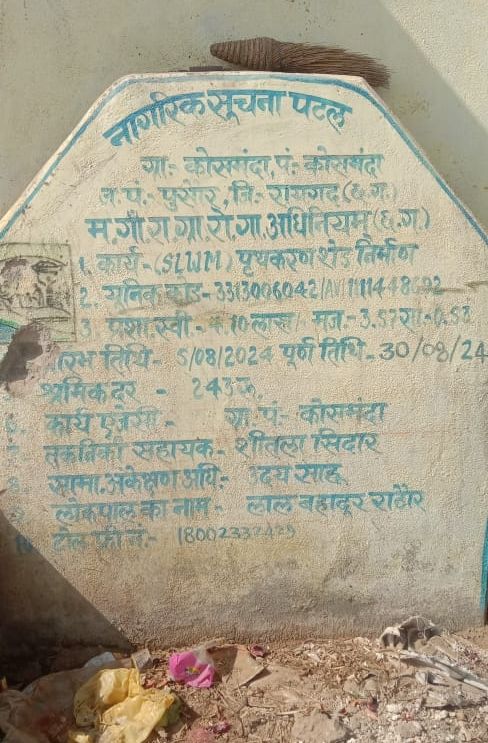 नागरिक सूचना पटल
ग्रा.- कोसमंदा, पं.- कोसमंदा
ज.पं.- पुसौर, जि.- रायगढ़ (छ.ग.)
म.गां.रा.ग्रा.रो.गा.अधिनियम् (छ.ग.)
1. कार्य-(SLWM) पृथकरण शेड निर्माण
2. यूनिक कोड- 3313006042/AV/1111448692
3. प्रशा.स्वी.- 4.10 लाख/ मज.- 3.57 सा-0.53
प्रारंभ तिथि- 5/08/2024 पूर्ण तिथि- 30/08/24
श्रमिक दर - 243 रू.
6. कार्य एजेंसी - ग्रा.पं.- कोसमंदा
7. तकनिकी सहायक- शीतला सिदार
8. सामा.अंकेक्षण अधि.- उदय साहू
9. लोकपाल का नाम - लाल बहादूर राठौर
10. टोल फ्री नं.- 18002332425